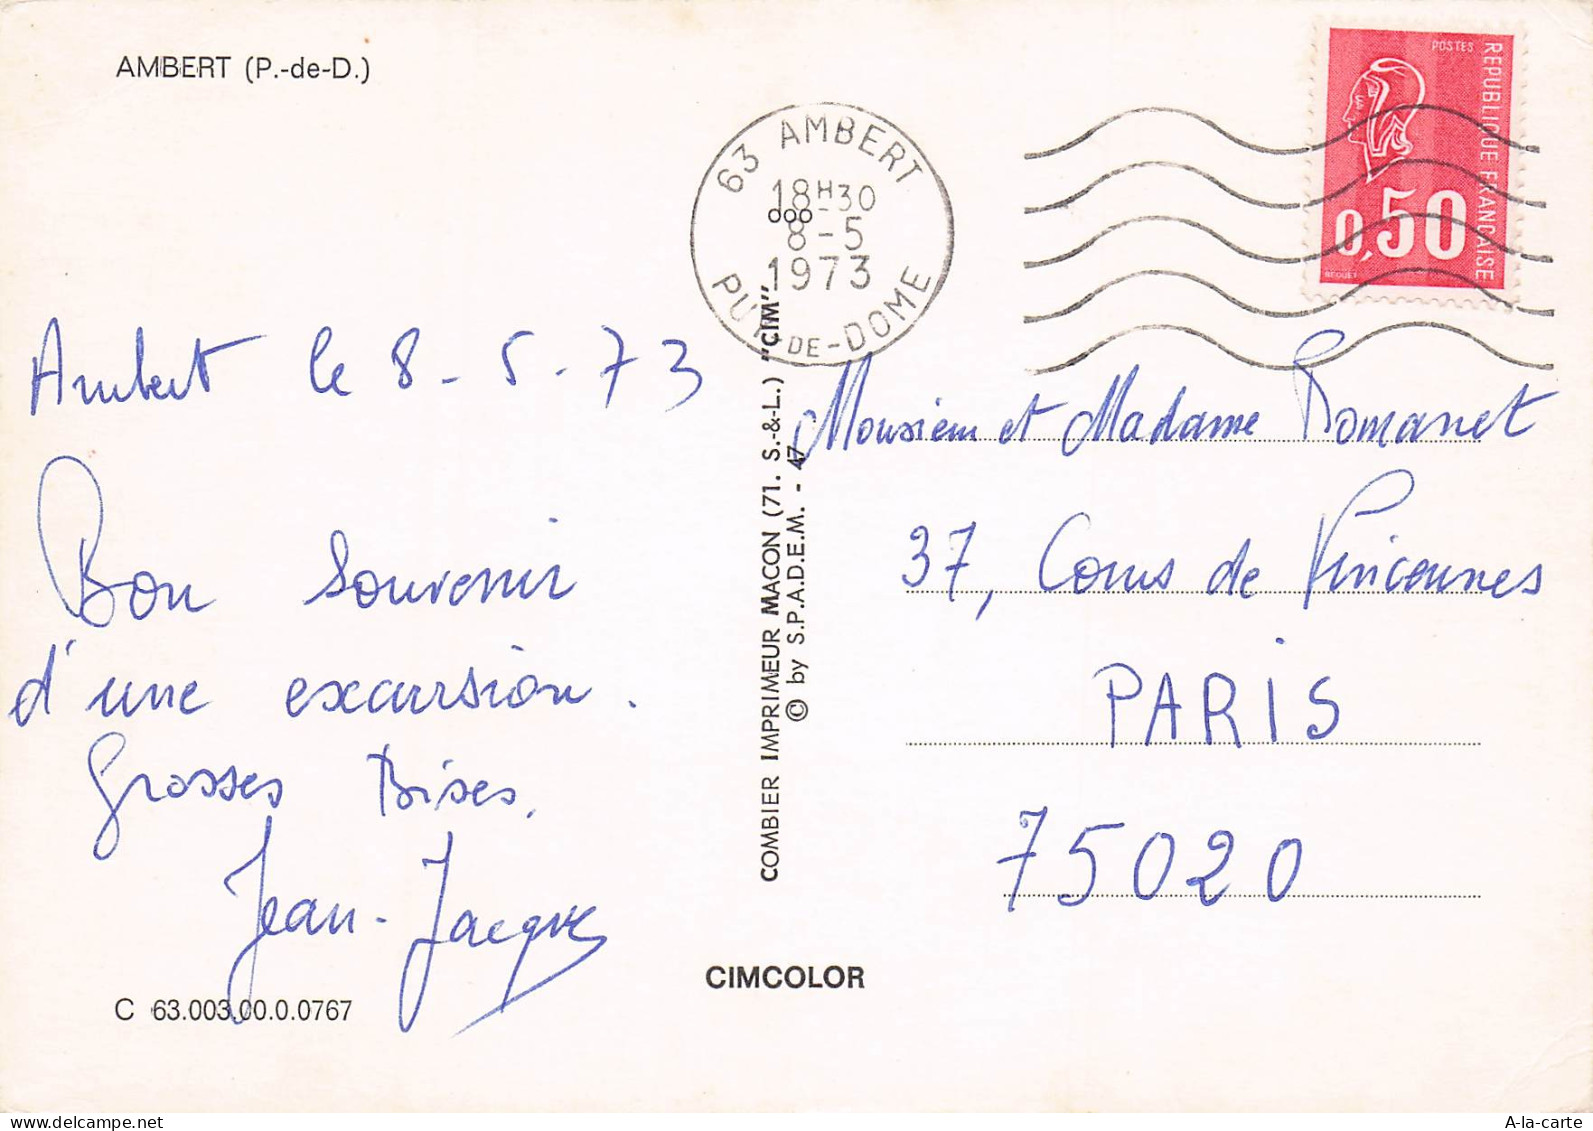 AMBERT (P.-de-D.)
63 AMBERT
18H30
8-5
1973
PUY-DE-DOME
POSTES
REPUBLIQUE FRANCAISE
0,50
BEQUET
Ambert le 8-5-73
Bon souvenir
d'une excursion.
Grosses Bises.
Jean-Jacques
C 63.003.00.0.0767
COMBIER IMPRIMEUR MACON (71. S.-&-L.) "CIM"
© by S.P.A.D.E.M. - 47
CIMCOLOR
Monsieur et Madame Romanet
37, Cours de Vincennes
PARIS
75020
delcampe.net
A-la-carte